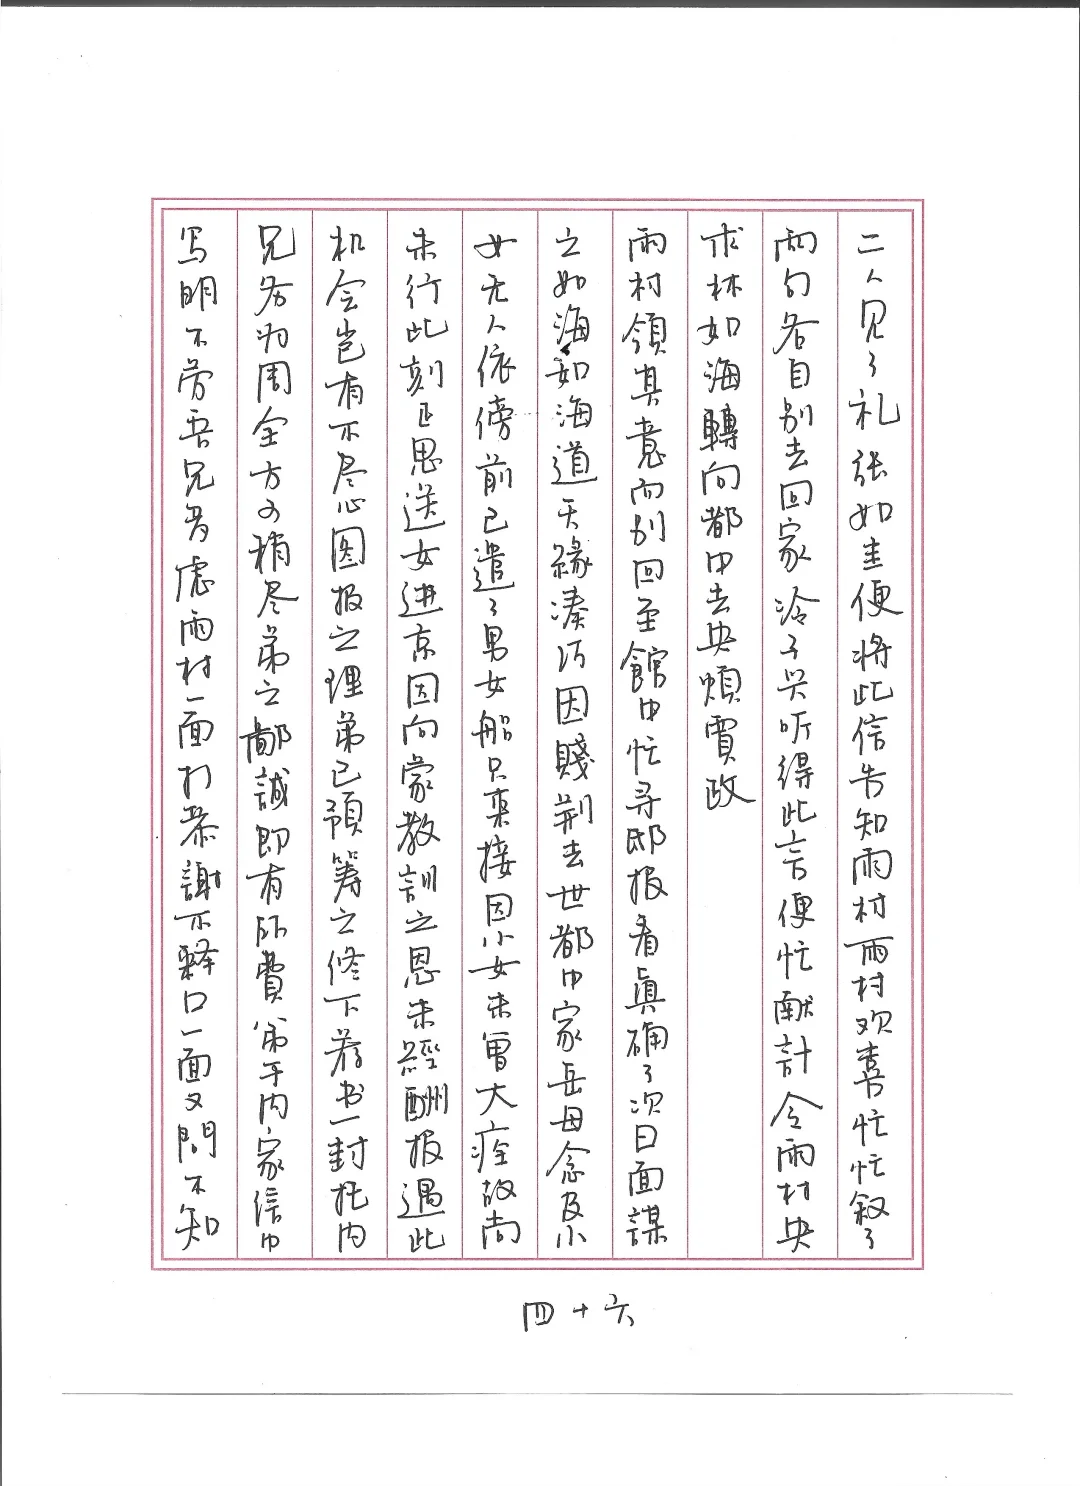 二人见了礼张如圭便将此信告知雨村雨村欢喜忙忙叙了
两句各自别去回家冷子兴听得此言便忙献計令雨村央
求林如海轉向都中去央煩賈政
雨村领其意而别回至館中忙寻邸报看真确了次日面謀
之如海如海道天緣凑巧因賤荆去世都中家岳母念及小
女无人依傍前已遣了男女船只来接因小女未曾大痊故尚
未行此刻正思送女进京因向蒙教訓之恩未經酬报遇此
机会岂有不尽心图报之理弟已预筹之修下荐书一封托内
兄务为周全方可稍尽弟之鄙誠即有所費弟于内家信中
写明不劳吾兄多虑雨村一面打恭謝不释口一面又問不知
四十六